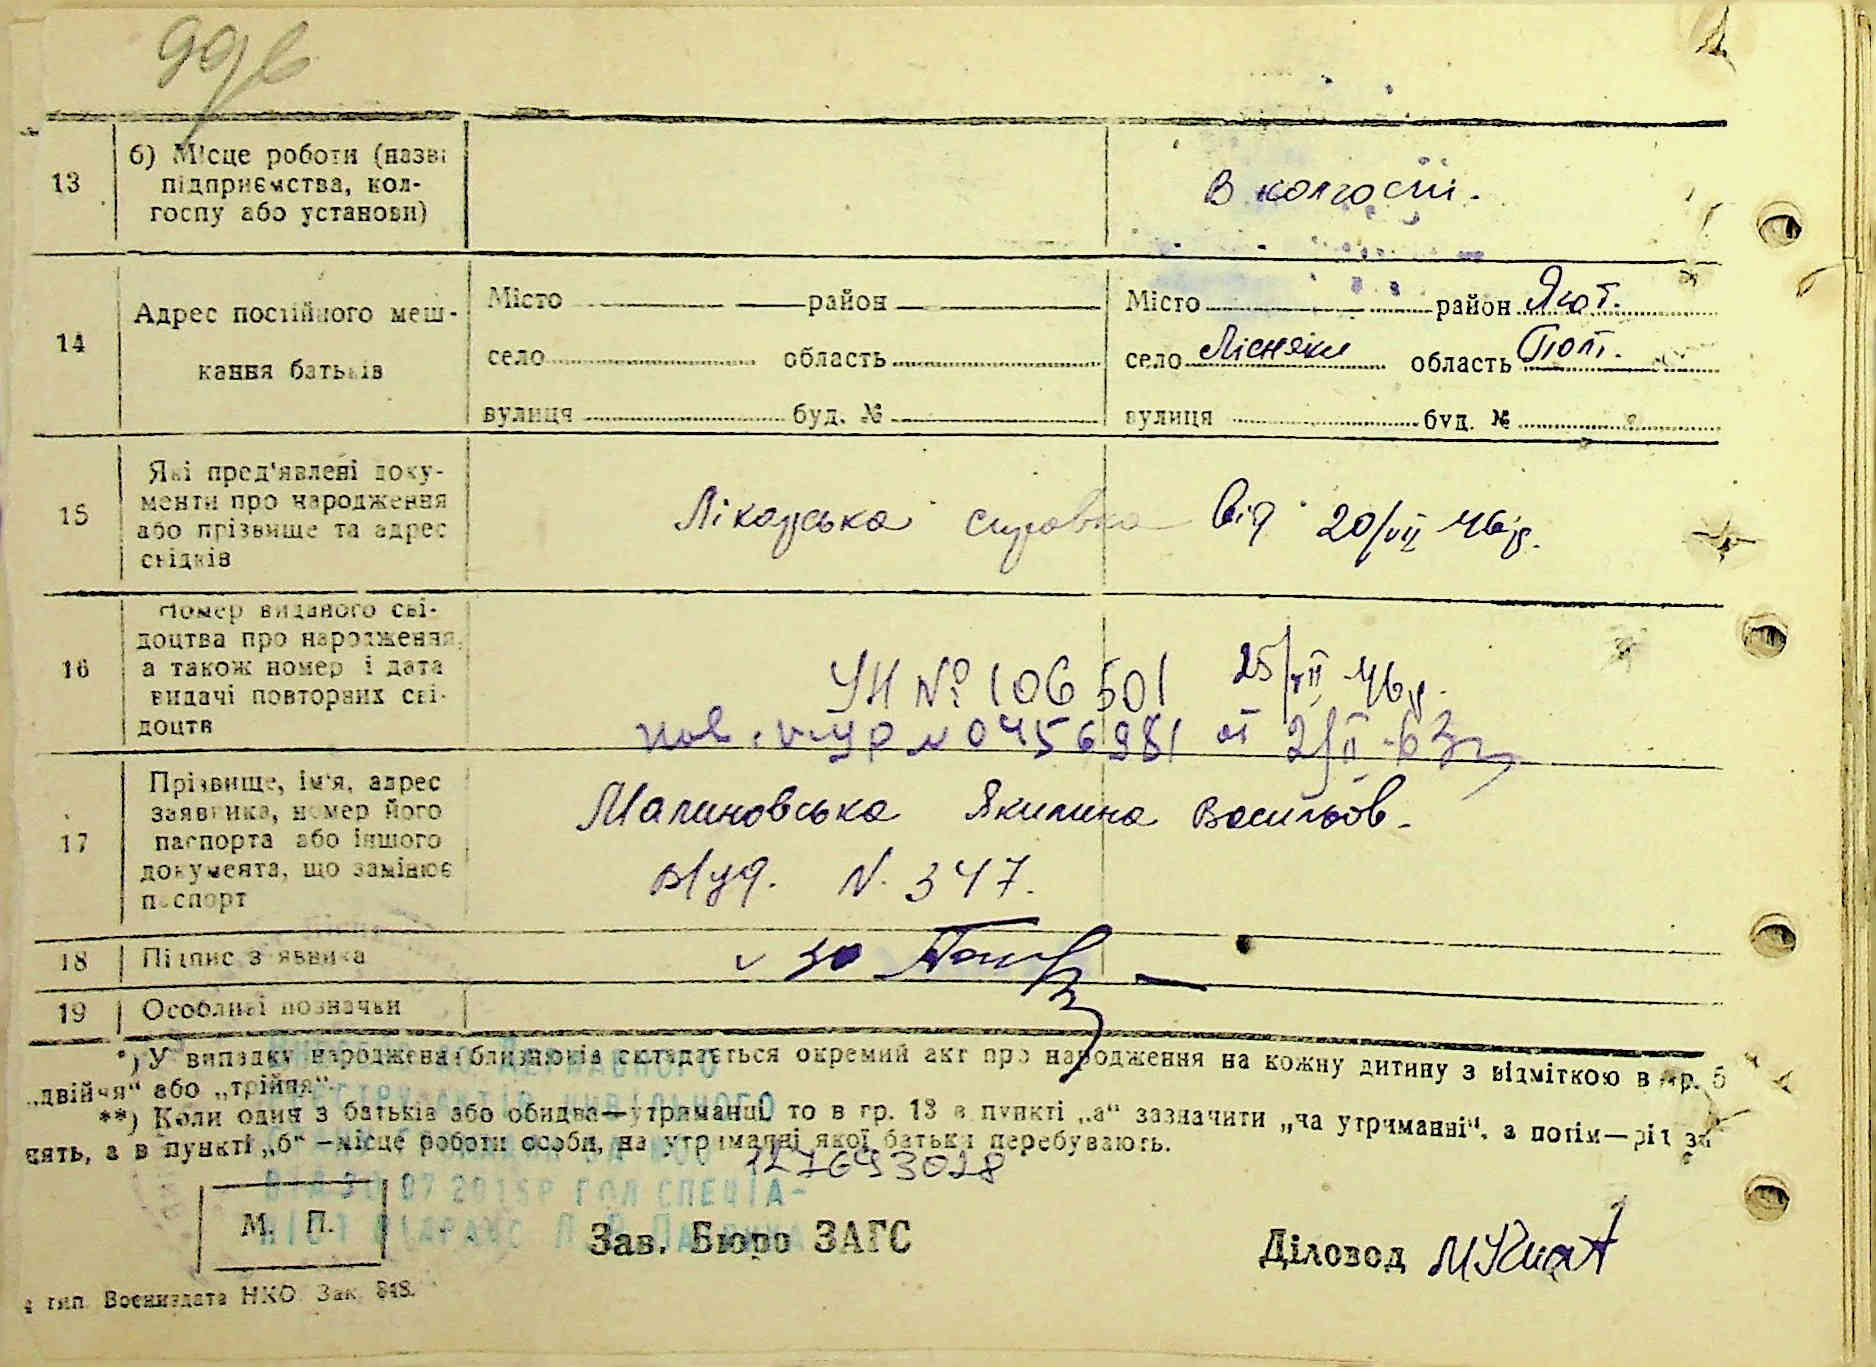 99в
13 б) Місце роботи (назва
підприємства, кол-
госпу або установи)
в колгоспі.
14 Адрес постійного меш-
кання батьків
Місто район
село область
вулиця буд. №
Місто район Ягот.
село Лісняки область Полт.
вулиця буд. №
15 Які пред'явлені доку-
менти про народження
або прізвище та адрес
свідків
Лікарська справка від 20/VII 46 р.
16 Номер виданого сві-
доцтва про народження,
а також номер і дата
видачі повторних сві-
доцтв
УН № 106501 25/VII 46 р.
пов. V-УР № 0456981 от 2/II-63 г
17 Прізвище, ім'я, адрес
заявника, номер його
паспорта або іншого
документа, що замінює
паспорт
Малиновська Якилина Васильов.
в/уд. N. 347.
18 Підпис заявника
v за
19 Особливі позначки
*) У випадку народження близнюків складається окремий акт про народження на кожну дитину з відміткою в гр. 5
„двійня“ або „трійня“.
**) Коли один з батьків або обидва—утриманці то в гр. 13 в пункті „а“ зазначити „на утриманні“, а потім—рід за
нять, а в пункті „б“ —місце роботи особи, на утриманні якої батьки перебувають.
127693028
М. П.
Зав. Бюро ЗАГС
Діловод
тип. Воениздата НКО Зак. 848.